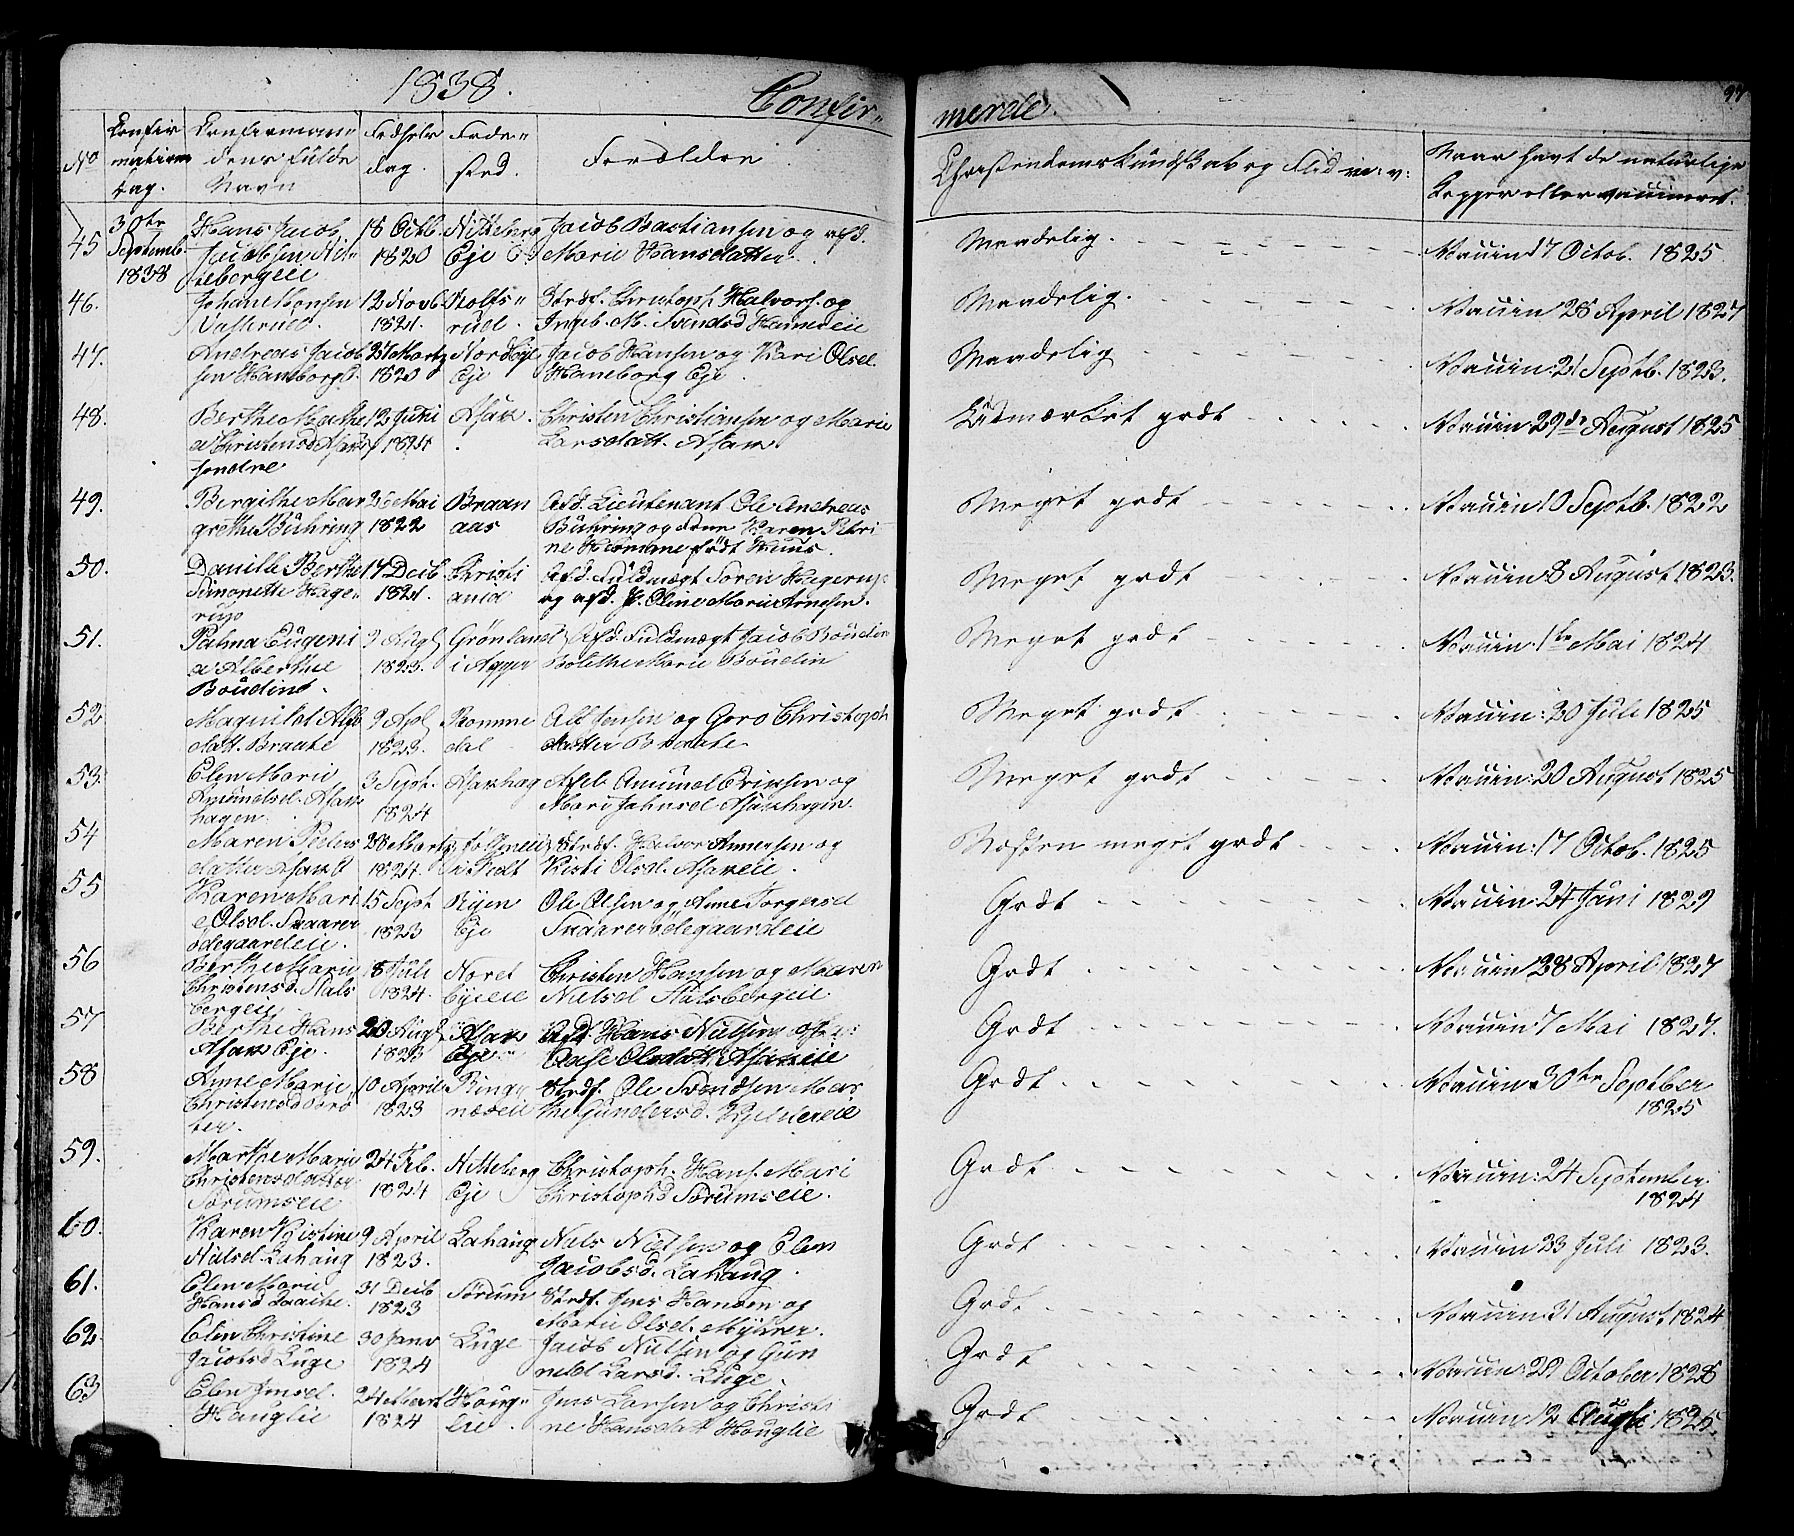 1838.
Confir-
merede.
97
No
Confir
mations
Dag.
Confirman-
dens fulde
Navn
Fødsels
dag.
Føde-
sted.
Forældre
Christendomskundskab og Flid m: v:
Naar havt de naturlige
Kopper eller vaccineret.
45
30te
Septemb.
1838
Hans Jacob
Jacobsen Hit-
tebergeie
18 Octb.
1820
Hitteberg
Eje
Jacob Bastiansen og afd.
Marie Hansdatter.
Maadelig.
Vaccin 17 Octob. 1825
46.
Johan Monsen
Vasterud.
12 Novb.
1821.
Kolts-
rud.
Strdf. Christoph Halvors. og
Ingeb. M. Svendsd Hemneseie
Maadelig.
Vaccin 28 April 1827
47.
Andreas Jacob
sen Haneborg E.
27 Martz
1820
Nordbye
Eje
Jacob Hansen og Kari Olsd.
Haneborg Eje.
Maadelig
Vaccin: 21 Septb. 1823.
48.
Berthe Mathe
a Christensd Asak
søndre
12 Juni
1824
Asak.
Christen Christiansen og Marie
Larsdatt. Asak.
Udmærket godt
Vaccin 29de August 1825
49.
Bergithe Mar
grethe Bühring
26 Mai
1822
Braan
aas
Afd. Lieutenant Ole Andreas
Bühring og Frue Karen Petri
ne Hermane født Huus.
Meget godt
Vaccin 10 Septb. 1822
50.
Danille Berthe
Simonette Hage-
rup
17 Decb
1821.
Christi
ania
Afd. Fuldmægt Søren Hagerup
og afd. Jf. Oline Marie Arnesen.
Meget godt
Vaccin: 8 August 1823.
51.
Palma Eugeni
a Alberthe
Boudins.
9 Aug
1823.
Grønland
i Agger
Afd. Fuldmægt Jacob Boudin
Bolethe Marie Boudin
Meget godt
Vaccin: 1te Mai 1824
52
Magnild Alfs
datt. Braate
9 Apl
1823.
Romme
dal
Alf Jensen og Goro Christoph
datter Braate
Meget godt
Vaccin: 20 Juli 1825
53.
Elen Marie
Amundsd. Asak
hagen
3 Sept.
1824
Asakhag
Afd. Amund Eriksen og
Mari Johnsd Asakhagen
Meget godt
Vaccin: 20 August 1825
54
Maren Peders
datter Asak E
28 Martz
1824.
i Fedt
Strdf. Halvor Annersen og
Kisti Olsd. Asakeie.
Næsten meget godt
Vaccin: 17 Octob. 1825
55
Karen Mari
e Olsd. Svarer
ødegaardeie.
15 Sept
1823
Ryen
Eje
Ole Olsen og Anne Torgersd
Svarerødegaardeie
Godt
Vaccin: 24 Juni 1829
56
Berthe Marie
Christensd. Stals
bergeie
18 Juli
1824.
Nord
byeeie
Christen Hansen og Maren
Nielsd Stalsbergeie
Godt
Vaccin 28 April 1827
57
Berthe Hans
Asak Eje.
20 Aug
1823
Asak
Eje
Afd. Hans Nielsen
Aase Olsdatt Asakeie
Godt
Vaccin 7 Mai 1827.
58
Anne Marie
Christensd Børø
ter.
10 April
1823
Ring
næseie
Strdf. Ole Svendsen Mar
the Gundersd. Kjelnereie
Godt
Vaccin 30te Septber
1825
59.
Marthe Marie
Christensdatter
Sørumseie
24 Feb.
1824
Hitteberg
Eje
Christoph. Hans. Mari
Christophsd Sørumseie.
Godt
Vaccin: 24 September
1824
60.
Karen Kistine
Nielsd. Lahaug
9 April
1823.
Lahaug
Niels Nielsen og Elen
Jacobsd. Lahaug.
Godt
Vaccin 23 Juli 1823.
61.
Elen Marie
Hansd Vaathe.
31 Decb
1823
Sørum
Strdf. Jens Hansen og
Marie Olsd. Myhrer.
Godt
Vaccin: 31 August 1824
62
Elen Christine
Jacobsd Luge
30 Janv
1824
Luge
Jacob Nielsen og Gun
nild Larsd. Luge.
Godt
Vaccin: 29 October 1828
63
Elen Jensd.
Hauglie
24 Mart
1824
Houg-
lie.
Jens Larsen og Christi
ne Hansdatt Houglie
Godt
Vaccin 12 Augti 1825.